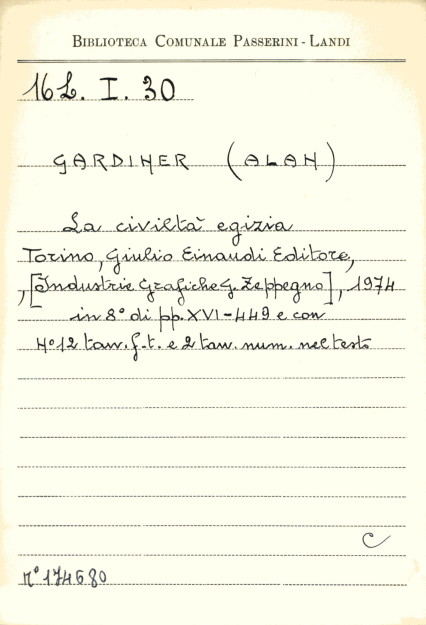 BIBLIOTECA COMUNALE PASSERINI - LANDI
16L. I. 30
GARDINER (ALAN)
La civiltà egizia
Torino, Giulio Einaudi Editore,
,[Industrie Grafiche G. Zeppegno], 1974
in 8° di pp. XVI-449 e con
N° 12 tav. f. t. e 2 tav. num. nel testo
C
n° 174680